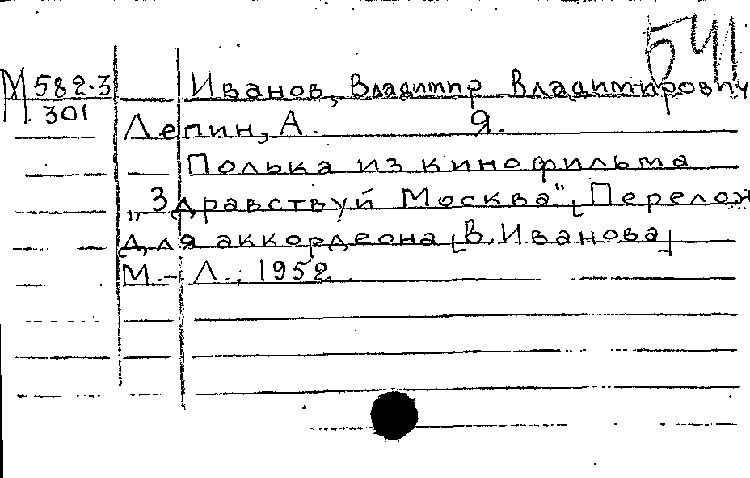 541
М 582-3 Иванов, Владимир Владимирович
301
Лепин, А. Я.
Полька из кинофильма
„Здравствуй Москва" [Перелож
для аккордеона [В. Иванова]
М.-Л., 1952